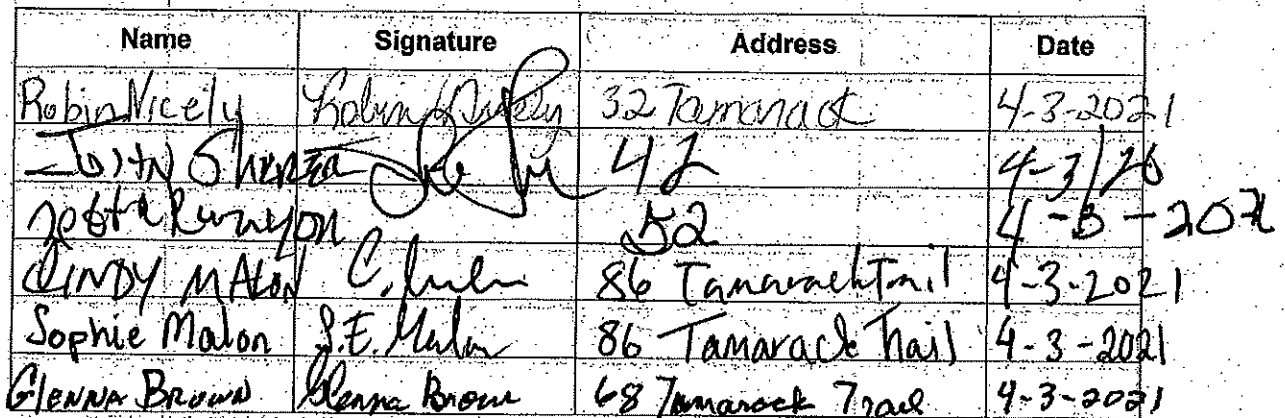 Name Signature Address Date
Robin Nicely Robin Nicely 32 Tamarack 4-3-2021
42 4-3/
Runyon 52 4-3-
CINDY MALON C. 86 Tamarack Trail 4-3-2021
Sophie Malon S.E. Malon 86 Tamarack Trail 4-3-2021
Glenna Brown Glenna Brown 68 Tamarock Trael 4-3-2021